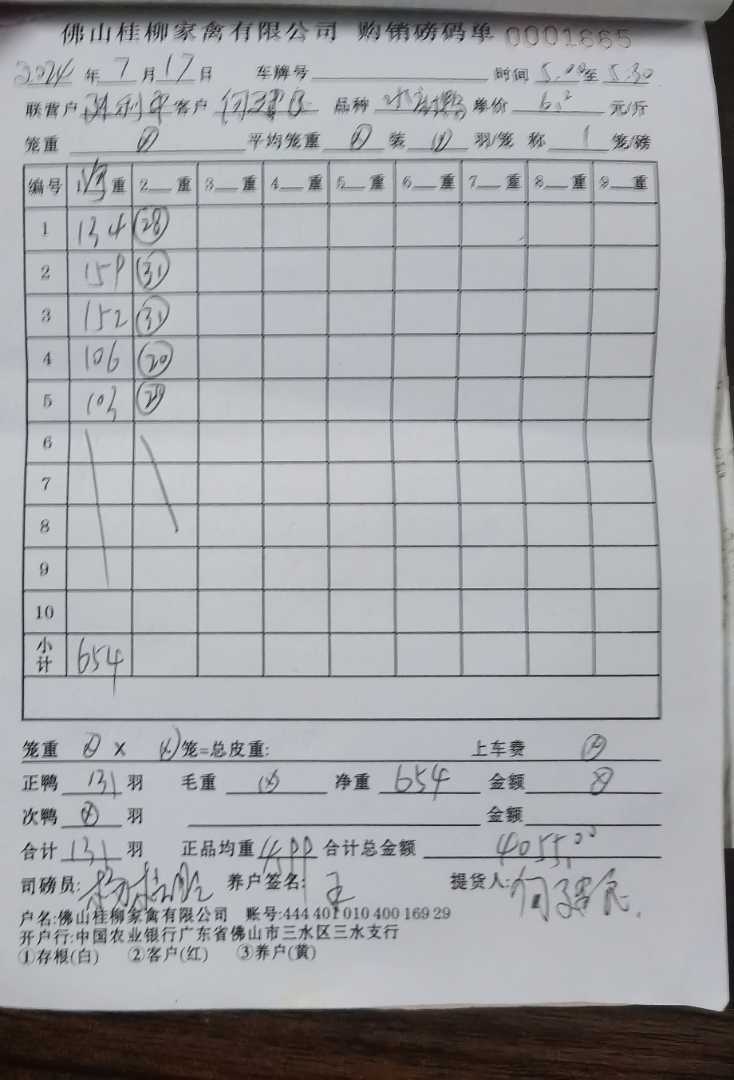 佛山桂柳家禽有限公司 购销磅码单 0001665
2024 年 7 月 17 日 车牌号 时间 5.00至 5.30
联营户 客户 品种 单价 6.2 元/斤
笼重 平均笼重 装 羽/笼 称 1 笼/磅
编号 1 重 2 重 3 重 4 重 5 重 6 重 7 重 8 重 9 重
1 134 (28)
2 159 (31)
3 152 (31)
4 106 (20)
5 103
6
7
8
9
10
小计 654
笼重 × 笼=总皮重: 上车费
正鸭 131 羽 毛重 净重 654 金额
次鸭 羽 金额
合计 131 羽 正品均重 4.99 合计总金额 4055.00
司磅员: 养户签名: 王 提货人:
户名:佛山桂柳家禽有限公司 账号:444 401 010 400 169 29
开户行:中国农业银行广东省佛山市三水区三水支行
①存根(白) ②客户(红) ③养户(黄)